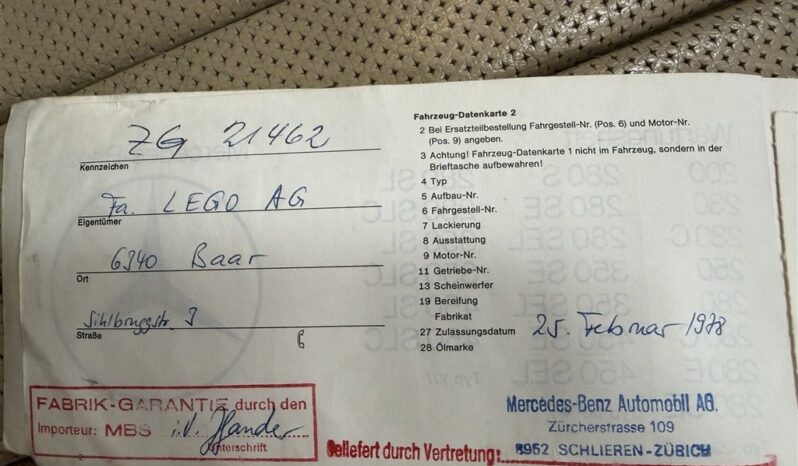 ZG 21462
Kennzeichen
Fa. LEGO AG
Eigentümer
6340 Baar
Ort
Sihlbruggstr. 3
Straße
Fahrzeug-Datenkarte 2
2 Bei Ersatzteilbestellung Fahrgestell-Nr. (Pos. 6) und Motor-Nr.
(Pos. 9) angeben.
3 Achtung! Fahrzeug-Datenkarte 1 nicht im Fahrzeug, sondern in der
Brieftasche aufbewahren!
4 Typ
5 Aufbau-Nr.
6 Fahrgestell-Nr.
7 Lackierung
8 Ausstattung
9 Motor-Nr.
11 Getriebe-Nr.
13 Scheinwerfer
19 Bereifung
Fabrikat
27 Zulassungsdatum 25. Februar 1978
28 Ölmarke
FABRIK-GARANTIE durch den
Importeur: MBS i.V.
Unterschrift
Geliefert durch Vertretung:
Mercedes-Benz Automobil AG.
Zürcherstrasse 109
8952 SCHLIEREN-ZÜRICH